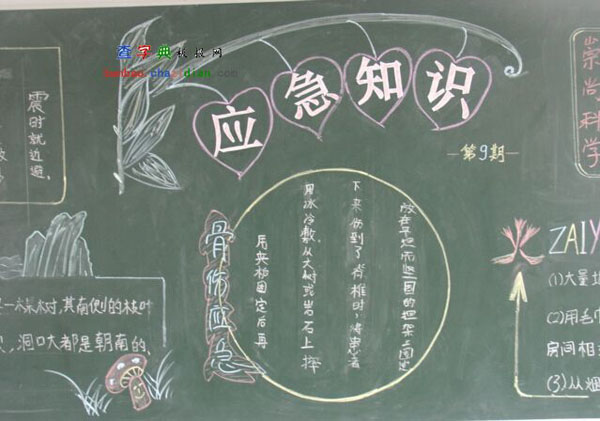 查字典板报网
banbao.chazidian.com
应急知识
—第9期—
崇尚科学
震时就近避,
一棵树,其南侧的枝叶
洞口大都是朝南的,
骨伤应急
用夹板固定后再
用冰冷敷,从大树或岩石上摔
下来伤到了脊椎时,将患者
放在平坦而坚固的担架上固定
火 ZAIY
(1)大量
(2)用毛巾
房间相
(3)从烟